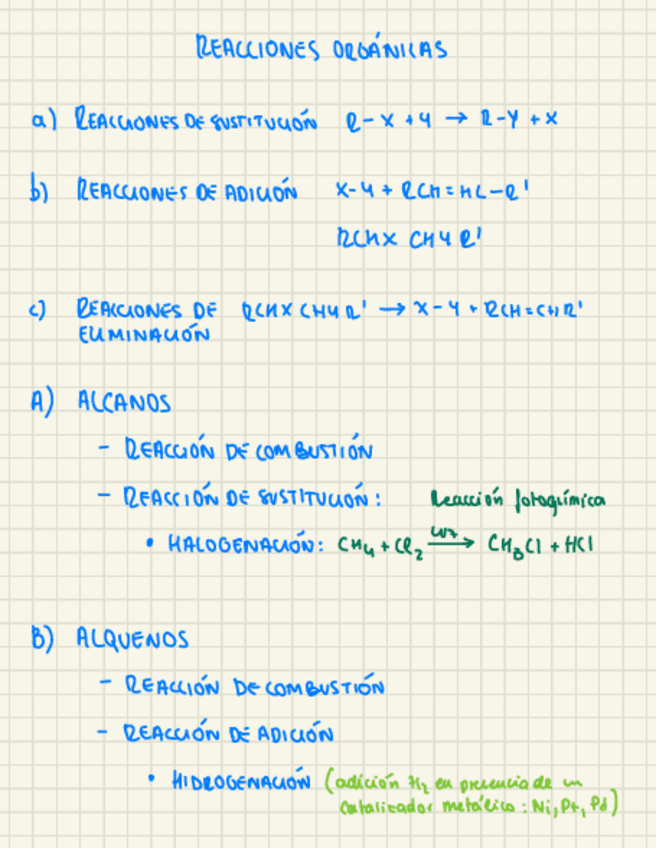 REACCIONES ORGÁNICAS
a) REACCIONES DE SUSTITUCIÓN R-X + Y → R-Y + X
b) REACCIONES DE ADICIÓN X-Y + RCH=HC-R'
RCHX CHYR'
c) REACCIONES DE RCHXCHYR' → X-Y + RCH=CHR'
ELIMINACIÓN
A) ALCANOS
- REACCIÓN DE COMBUSTIÓN
- REACCIÓN DE SUSTITUCIÓN: Reacción fotoquímica
• HALOGENACIÓN: CH₄ + Cl₂ → CH₃Cl + HCl
B) ALQUENOS
- REACCIÓN DE COMBUSTIÓN
- REACCIÓN DE ADICIÓN
• HIDROGENACIÓN (adición H₂ en presencia de un
catalizador metálico: Ni, Pt, Pd)